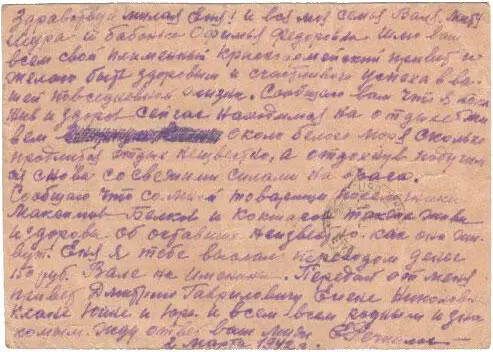 Здравствуй милая Еня! и вся моя семья Валя,
Шура и бабонька Офилья Федоровна Шлю вам
всем свой пламенный красноармейский привет и
желаю быть здоровым и счастливого успеха в ва
шей повседневной жизни. Сообщаю вам что я пока
жив и здоров сейчас нахожимся на отдыхе жи
вем около белого моря сколько
продлится отдых неизвестно, а отдохнув
снова со свежими силами на врага.
Сообщаю что со мной товарищи
Максимов Белков и также живы
и здоровы об остальных неизвестно как они жи
вут! Еня я тебе выслал переводом денег
150 руб. Вале на имянины. Передай от меня
привет Дмитрию Гавриловичу, Елене Николаевне
Клане Юре и всем всем родным и зна
комым. Жду ответ ваш
2 марта 1942 г.